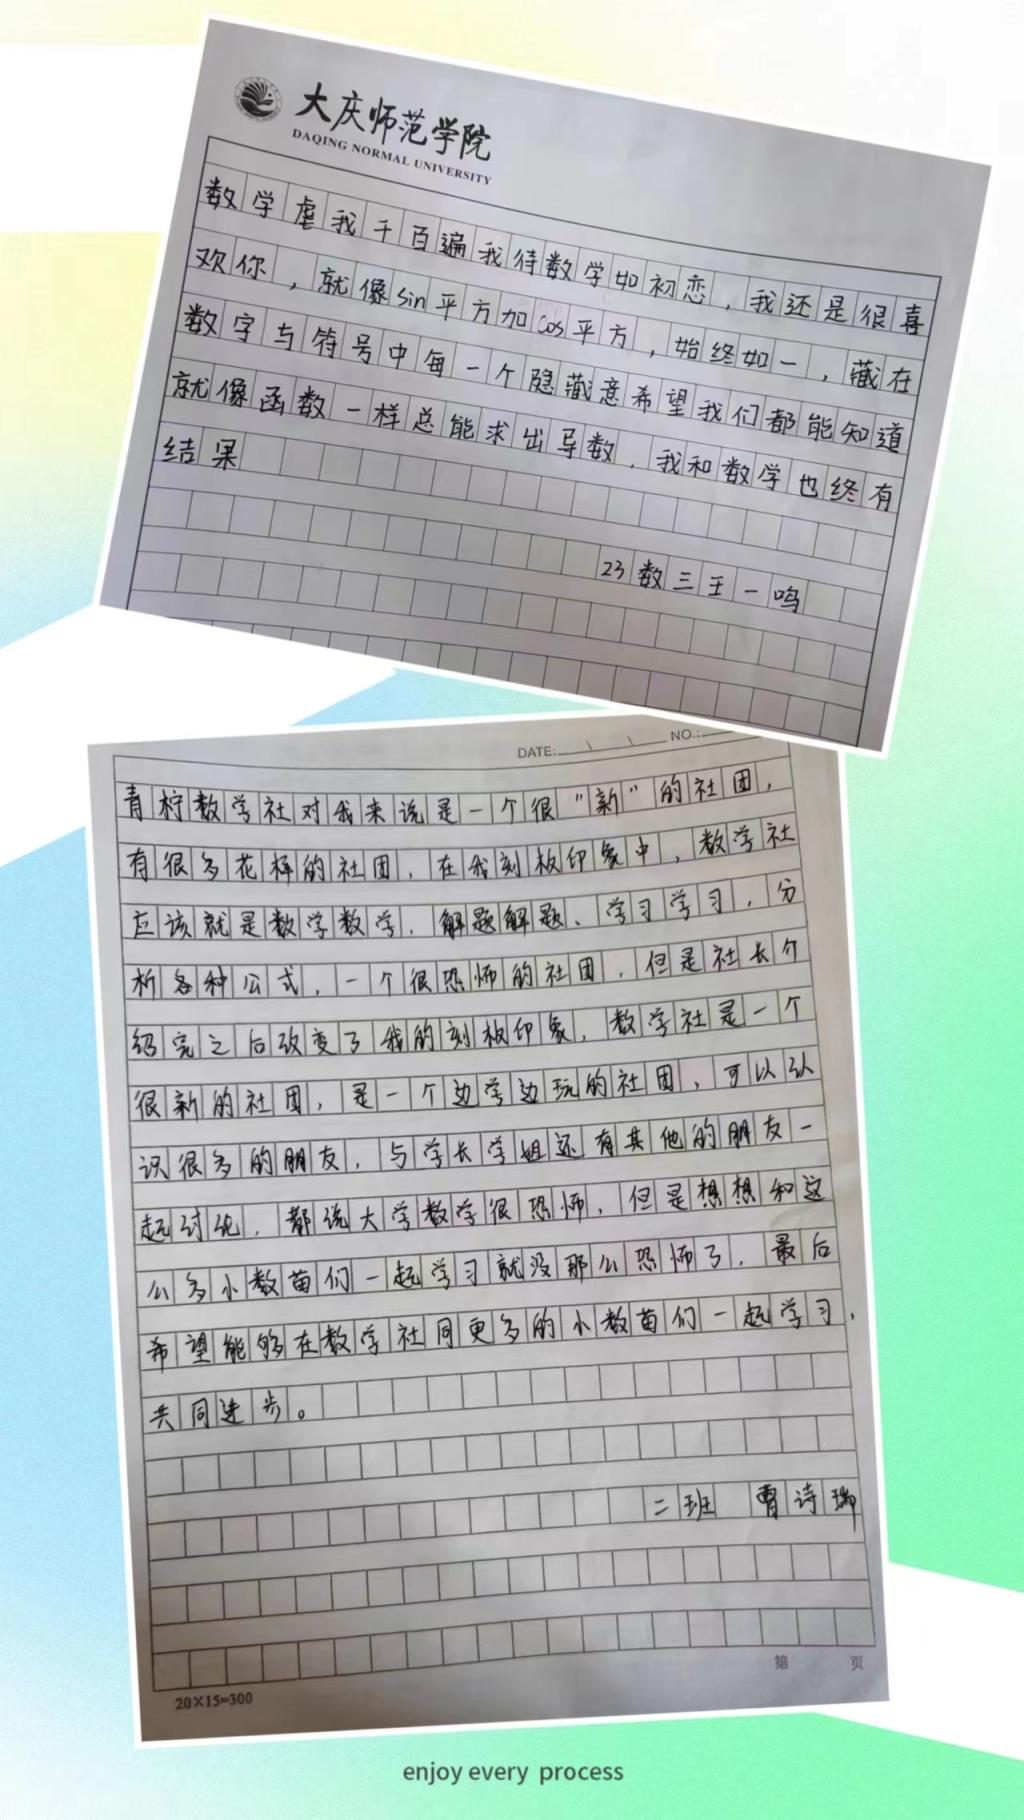 大庆师范学院
DAQING NORMAL UNIVERSITY
数学虐我千百遍我待数学如初恋，我还是很喜
欢你，就像sin平方加cos平方，始终如一，藏在
数字与符号中每一个隐藏意希望我们都能知道
就像函数一样总能求出导数，我和数学也终有
结果
23数三王一鸣
DATE: NO.:
青柠数学社对我来说是一个很“新”的社团，
有很多花样的社团，在我刻板印象中，数学社
应该就是数学数学，解题解题、学习学习，分
析各种公式，一个很恐怖的社团，但是社长介
绍完之后改变了我的刻板印象，数学社是一个
很新的社团，是一个边学边玩的社团，可以认
识很多的朋友，与学长学姐还有其他的朋友一
起讨论，都说大学数学很恐怖，但是想想和这
么多小数苗们一起学习就没那么恐怖了，最后
希望能够在数学社同更多的小数苗们一起学习，
共同进步。
二班 曹诗瑞
第 页
20×15=300
enjoy every process